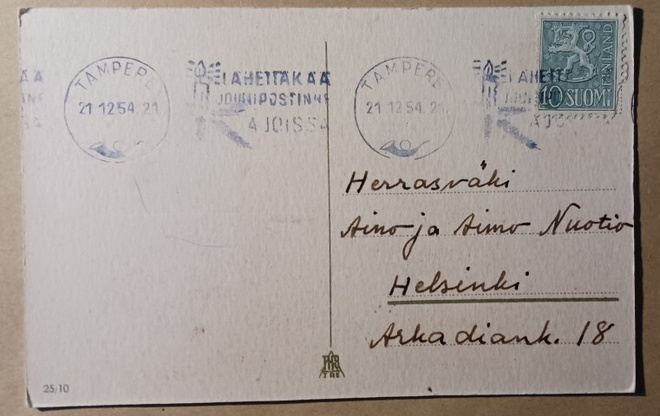 TAMPERE
21.12.54.21
LÄHETTÄKÄÄ
JOULUPOSTINNE
AJOISSA
TAMPERE
21.12.54.21
LÄHETT
10 SUOMI
FINLAND
Herrasväki
Aino ja Aimo Nuotio
Helsinki
Arkadiank. 18
TRE
25/10